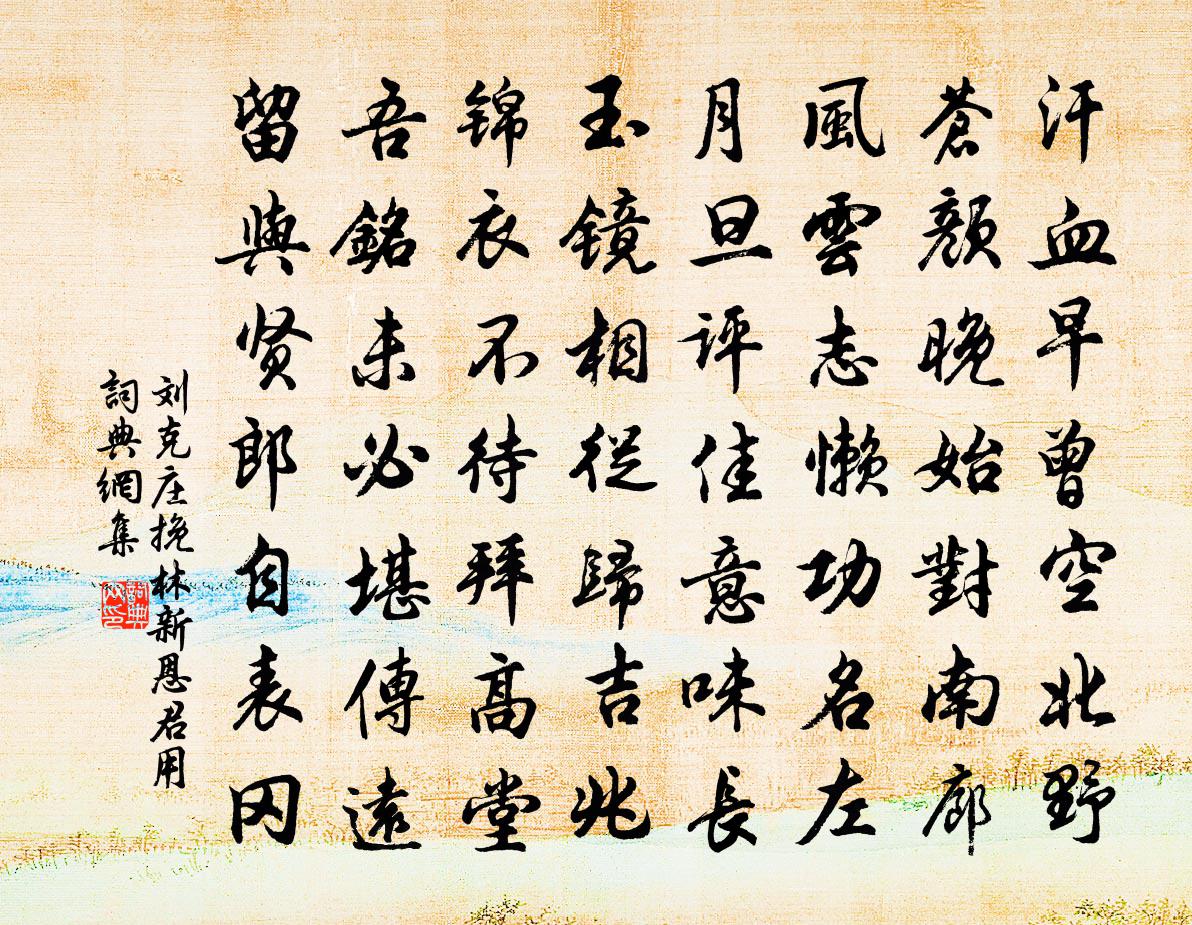 汗血早曾空北野
蒼顏晚始對南廊
風雲志懶功名左
月旦評佳意味長
玉镜相從歸吉兆
锦衣不待拜高堂
吾銘未必堪傳遠
留與贤郎自表冈
刘克庄挽林新恩君用
詞典網集